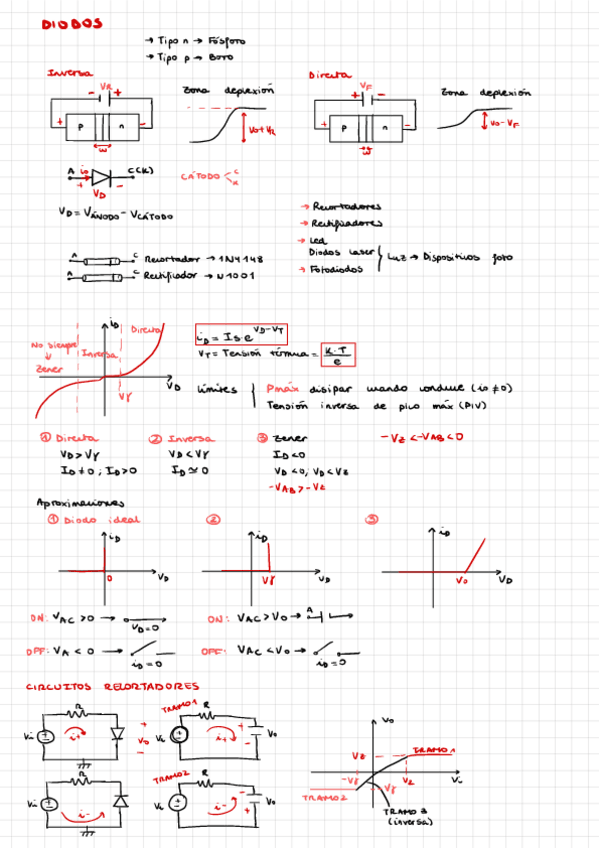 DIODOS
→ Tipo n → Fósforo
→ Tipo p → Boro
Inversa
VR
- +
+ p n -
w
Zona deplexión
Vo+VR
Directa
VF
+ -
+ p n -
w
Zona deplexión
Vo-VF
A iD C(K)
+ VD -
CÁTODO < C
K
VD = VÁNODO - VCÁTODO
→ Recortadores
→ Rectificadores
→ Led
Diodos laser
→ Fotodiodos
Luz → Dispositivos foto
A C Recortador → 1N4148
A C Rectificador → N1001
iD
Directa
No siempre
Inversa
Zener
VD
Vγ
iD = Is e VD-VT
VT = Tensión térmica = K·T
e
Límites { Pmáx disipar cuando conduce (iD ≠ 0)
Tensión inversa de pico máx (PIV)
① Directa
VD > Vγ
ID ≠ 0 ; ID > 0
② Inversa
VD < Vγ
ID ≃ 0
③ Zener
ID < 0
VD < 0, VD < VZ
-VAB > -VZ
-VZ < -VAB < 0
Aproximaciones
① Diodo ideal
iD
0
VD
②
iD
Vγ
VD
③
iD
Vo
VD
ON: VAC > 0 →
VD=0
OFF: VA < 0 →
iD=0
ON: VAC > Vo → A
OFF: VAC < Vo →
iD=0
CIRCUITOS RECORTADORES
R
Vi
i+
+
Vo
-
TRAMO 1
R
Vi
i+
+
-
Vo
R
Vi
i-
TRAMO 2
R
Vi
i-
-
+
Vo
Vo
TRAMO 1
-Vγ
Vi
Vγ
TRAMO 2
TRAMO 3
(inversa)